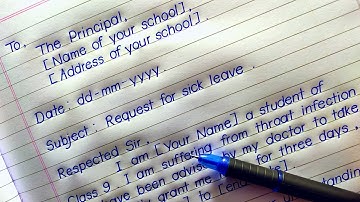 To,
The Principal,
[Name of your school],
[Address of your school].
Date: dd-mm-yyyy.
Subject: Request for sick leave.
Respected Sir,
I am [Your Name] a student of
Class 9. I am suffering from throat infection
have been advised by my doctor to take
grant me for three days.
to